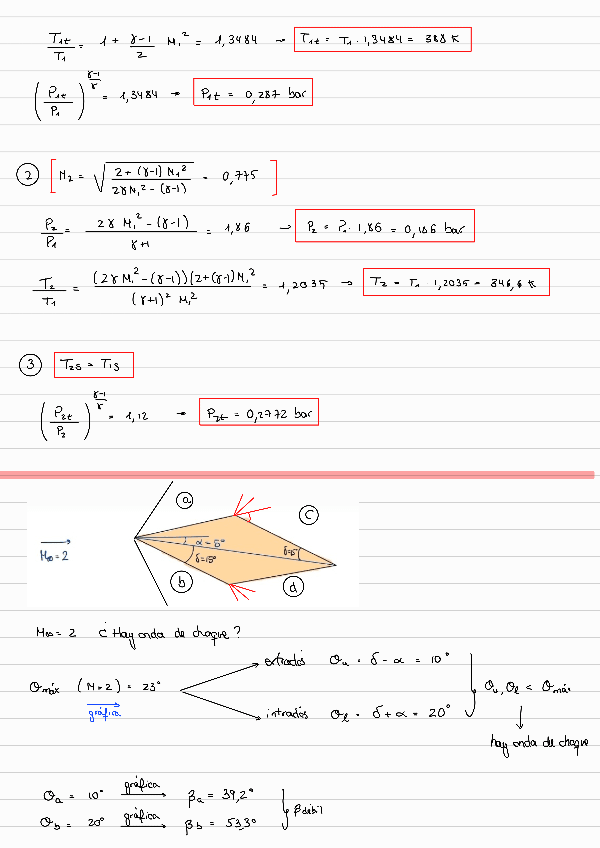 T1t/T1 = 1 + (γ-1)/2 M1² = 1,3484 → T1t = T1 · 1,3484 = 388 K
(P1t/P1)^((γ-1)/γ) = 1,3484 → P1t = 0,287 bar
② [ M2 = √((2 + (γ-1) M1²)/(2γM1² - (γ-1))) = 0,775 ]
P2/P1 = (2γ M1² - (γ-1))/(γ+1) = 1,86 → P2 = P1 · 1,86 = 0,186 bar
T2/T1 = ((2γM1² - (γ-1))(2+(γ-1)M1²)/((γ+1)² M1²) = 1,2035 → T2 = T1 1,2035 = 846,6 K
③ T2s = T1s
(P2t/P2)^((γ-1)/γ) = 1,12 → P2t = 0,2772 bar
a
c
α = 5°
M∞ = 2
δ=15°
b
d
M∞ = 2 ¿Hay onda de choque?
extradós θu = δ - α = 10°
θmáx (M=2) = 23°
θu, θl < θmáx
gráfica
intradós θl = δ + α = 20°
hay onda de choque
θa = 10° gráfica → βa = 39,2°
β débil
θb = 20° gráfica → βb = 53,3°